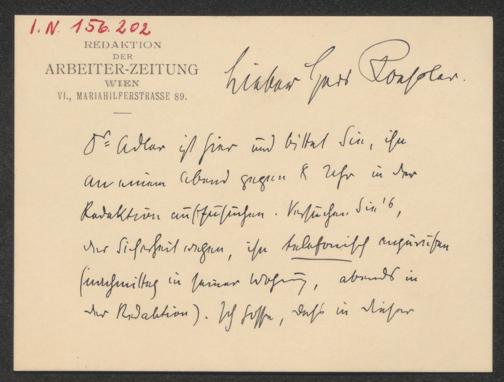 I.N. 156.202
REDAKTION
DER
ARBEITER-ZEITUNG
WIEN
VI., MARIAHILFERSTRASSE 89.
Lieber Herr Roessler.
Dr Adler ist hier und bittet Sie, ihn
an einem Abend gegen 8 Uhr in der
Redaktion aufzusuchen. Versuchen Sie's,
der Sicherheit wegen, ihn telefonisch anzurufen
(nachmittag in seiner Wohnung, abends in
der Redaktion). Ich hoffe, dass in dieser